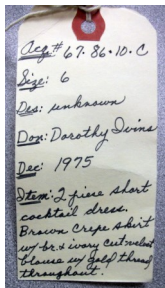 Acq# 67.86.10.C
Size: 6
Des: unknown
Don: Dorothy Ivins
Dec: 1975
Item: 2 piece short
cocktail dress.
Brown Crepe skirt
w/br. & ivory cut velvet
blouse w/ gold thread
throughout.